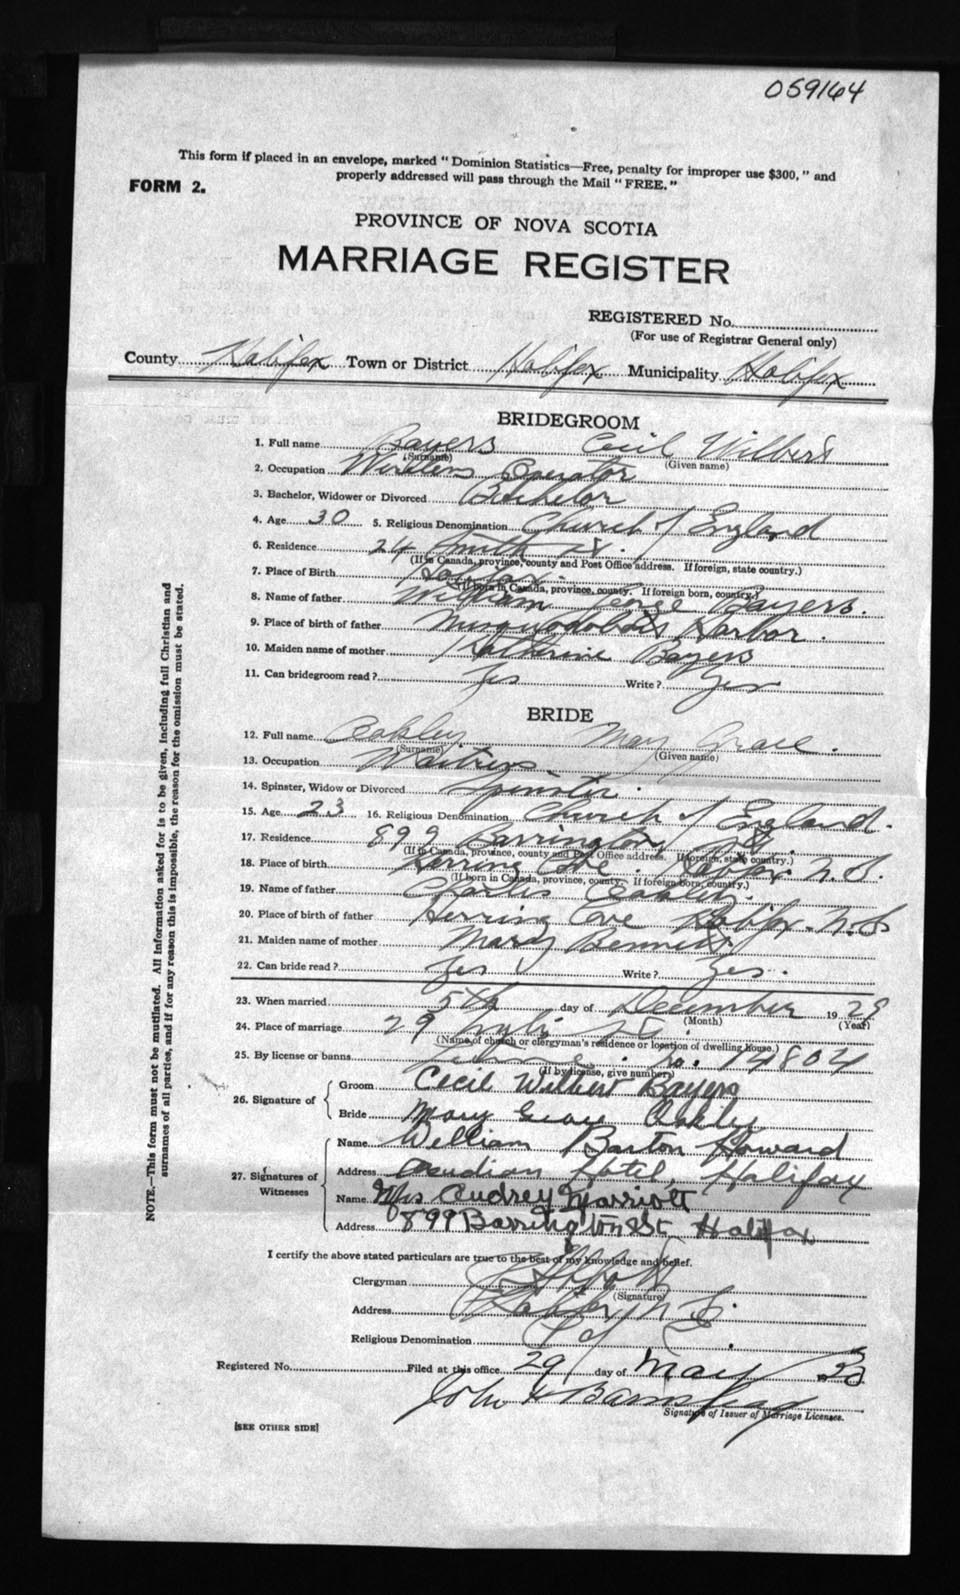 059164
This form if placed in an envelope, marked "Dominion Statistics—Free, penalty for improper use $300," and
properly addressed will pass through the Mail "FREE."
FORM 2.
PROVINCE OF NOVA SCOTIA
MARRIAGE REGISTER
REGISTERED No.
(For use of Registrar General only)
County Halifax Town or District Halifax Municipality Halifax
BRIDEGROOM
1. Full name Bayers Cecil Wilbert
(Surname) (Given name)
2. Occupation Wireless Operator
3. Bachelor, Widower or Divorced Bachelor
4. Age 30 5. Religious Denomination Church of England
6. Residence 24 Smith St.
(If in Canada, province, county and Post Office address. If foreign, state country.)
7. Place of Birth Halifax
(If born in Canada, province, county. If foreign born, country.)
8. Name of father William George Bayers.
9. Place of birth of father Musquodoboit Harbor.
10. Maiden name of mother Katherine Bayers
11. Can bridegroom read? Yes Write? Yes
BRIDE
12. Full name Oakley Mary Grace.
(Surname) (Given name)
13. Occupation Waitress.
14. Spinster, Widow or Divorced Spinster.
15. Age 23 16. Religious Denomination Church of England.
17. Residence 899 Barrington St.
(If in Canada, province, county and Post Office address. If foreign, state country.)
18. Place of birth Herring Cove. Halifax N.S.
(If born in Canada, province, county. If foreign born, country.)
19. Name of father Charles Oakley.
20. Place of birth of father Herring Cove Halifax. N.S
21. Maiden name of mother Mary Bennett
22. Can bride read? Yes Write? Yes.
23. When married 5th day of December 1929
(Month) (Year)
24. Place of marriage 29 St.
(Name of church or clergyman's residence or location of dwelling house.)
25. By license or banns License. No. 14804
(If by license, give number)
26. Signature of { Groom Cecil Wilbert Bayers
Bride Mary Grace Oakley
27. Signatures of Witnesses { Name William Barton Howard
Address Acadian Hotel, Halifax
Name Mrs Audrey Marriott
Address 899 Barrington St Halifax
I certify the above stated particulars are true to the best of my knowledge and belief.
Clergyman
(Signature)
Address Halifax N.S.
Religious Denomination
Registered No. Filed at this office 29 day of May
John H Barnstead
Signature of Issuer of Marriage Licenses.
[SEE OTHER SIDE]
NOTE.—This form must not be mutilated. All information asked for is to be given, including full Christian and
surnames of all parties, and if for any reason this is impossible, the reason for the omission must be stated.